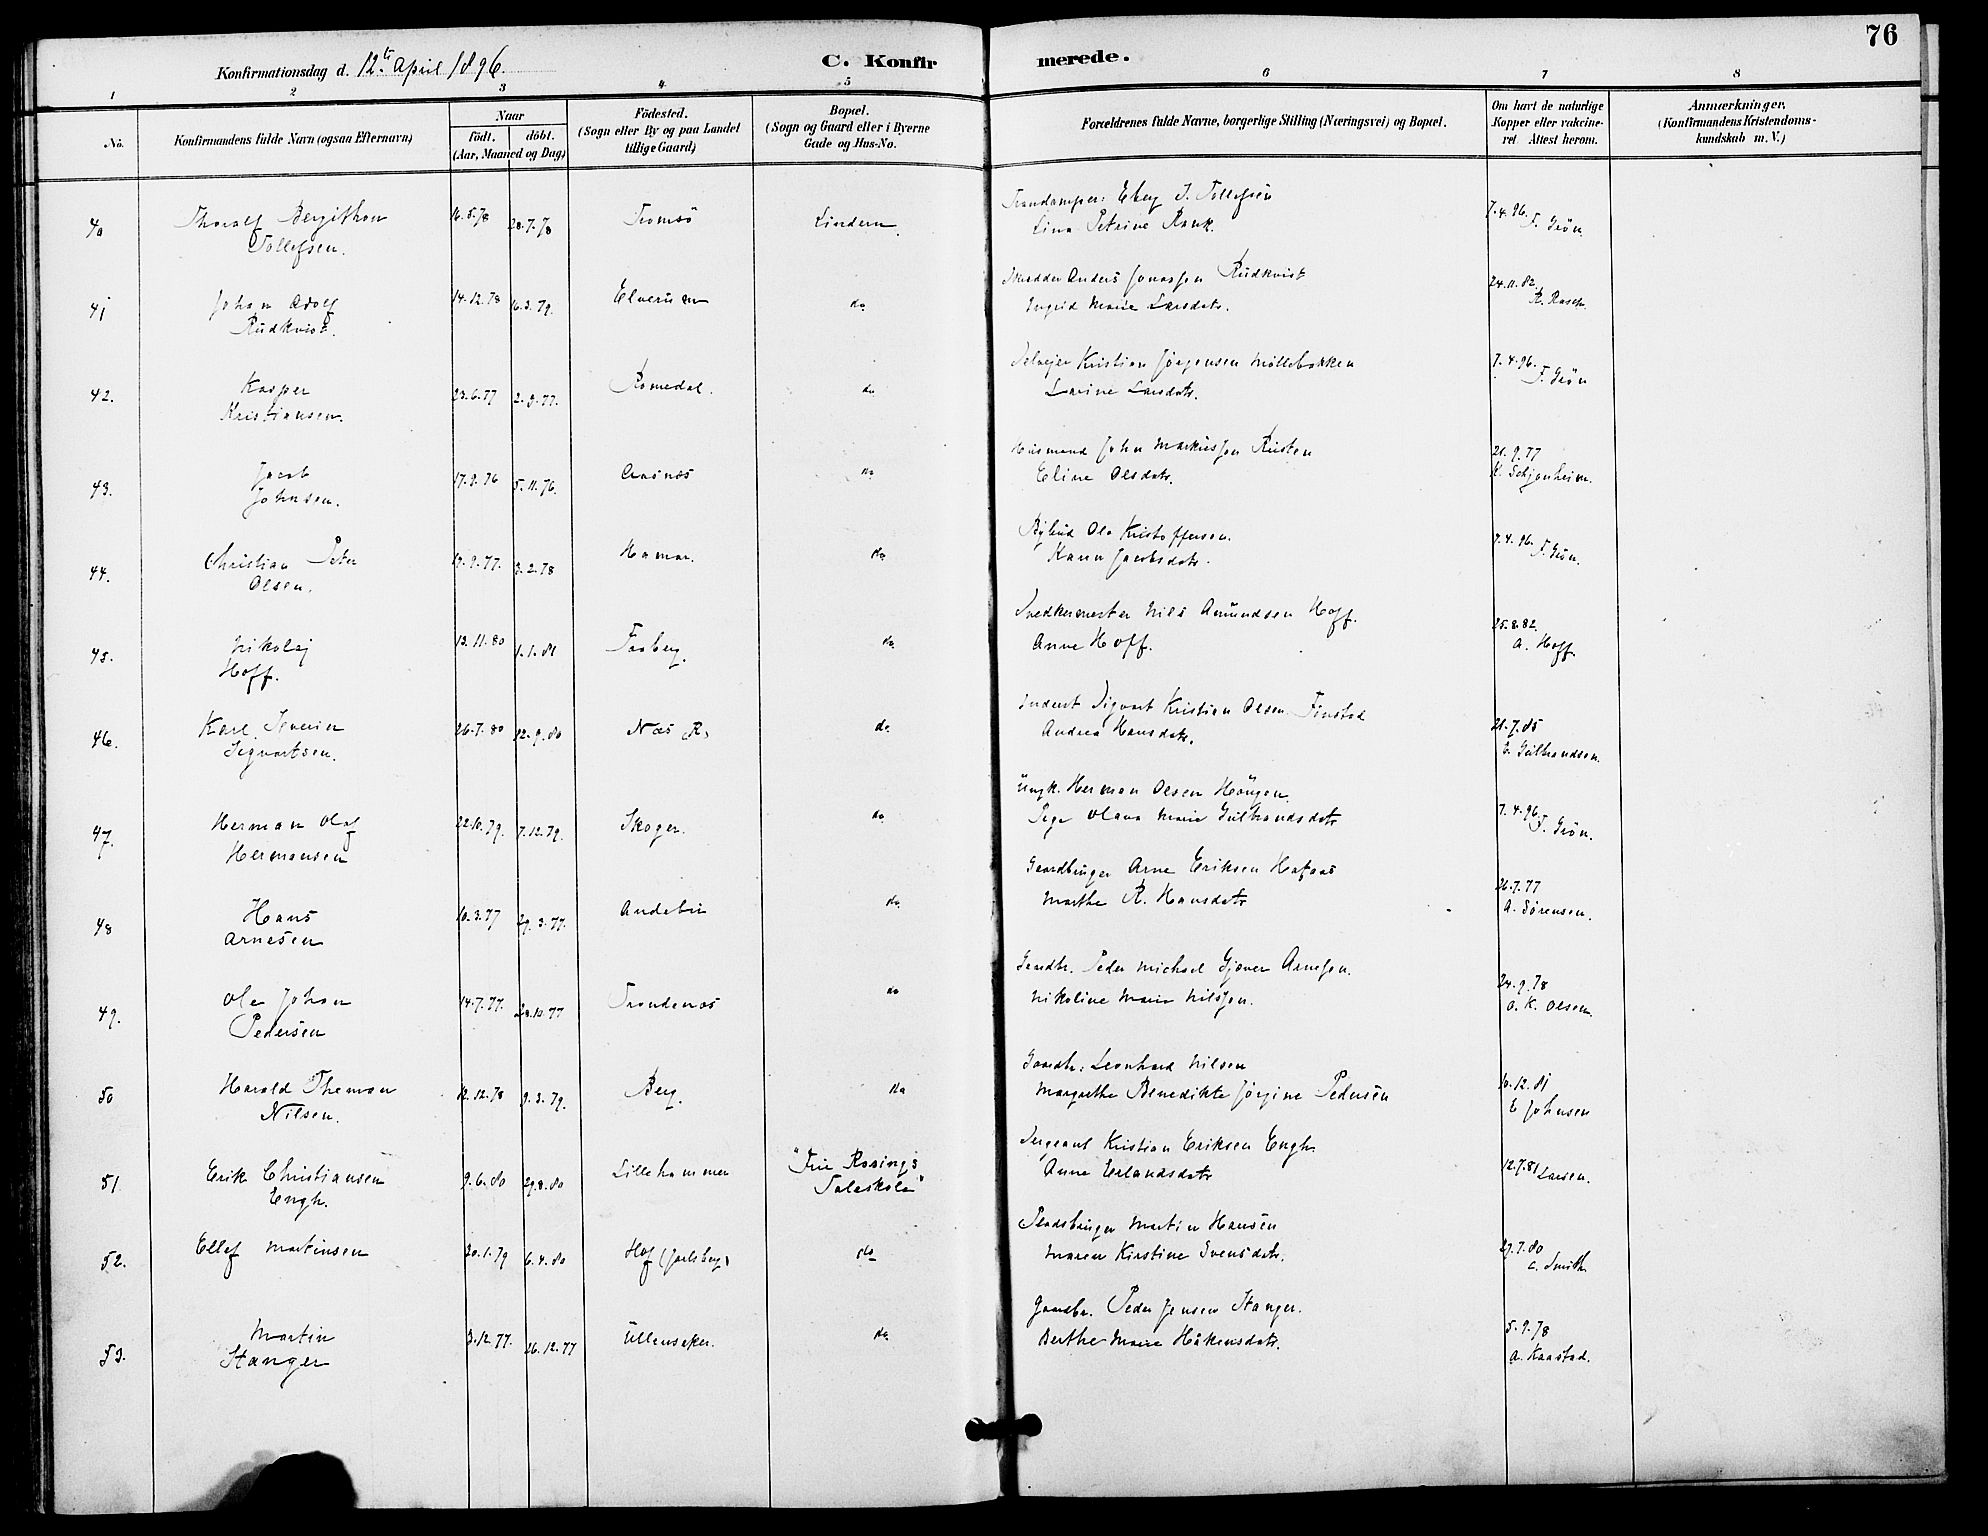 76
Konfirmationsdag d. 12te April 1896.
C. Konfirmerede.
1 2 3 4 5 6 7 8
No.
Konfirmandens fulde Navn (ogsaa Efternavn)
Naar
födt. döbt.
(Aar, Maaned og Dag)
Födested.
(Sogn eller By og paa Landet
tillige Gaard)
Bopæl.
(Sogn og Gaard eller i Byerne
Gade og Hus-No.
Forældrenes fulde Navne, borgerlige Stilling (Næringsvei) og Bopæl.
Om havt de naturlige
Kopper eller vakcine-
ret Attest herom.
Anmærkninger.
(Konfirmandens Kristendoms-
kundskab m. V.)
40 Thoralf Bergithon 16.5.78 28.7.78 Tromsö Lindern Elberg J. Tollefsen 7.4.96.
Tollefsen. Lina Petrine Rank. F. Grön.
41 Johan Adolf 14.12.78 6.3.79. Elverum do Skrædder Anders Jonassen Rudkvist 24.11.82
Rudkvist. Ingrid Marie Larsdatr. R. Rasch.
42. Kasper 23.6.77 2.9.77. Romedal. do Selveier Kristian Jörgensen Möllebakken 7.4.96.
Kristiansen. Lavine Larsdatr. F. Grön
43. Jacob 17.9.76 5.11.76. Aasnæs do Husmand John Markussen Rusten 21.9.77
Johnsen. Eline Olsdatr. K. Schjønheim.
44. Christian Peter 17.9.77. 3.2.78 Hamar. do Bybud Ole Kristoffersen. 7.4.96.
Olsen. Karen Jacobsdatr. F. Grön.
45. Nikolaj 13.11.80 1.1.81 Faaberg. do Snedkermester Nils Amundsen Hoff. 25.8.82.
Hoff. Anne Hoff. A. Hoff.
46. Karl Severin 26.7.80 12.9.80 Næs (R) do Inderst Sigvart Kristian Olsen Finstad 21.7.85
Sigvartsen. Andrea Hansdatr. Gulbrandsen.
47. Herman Olaf 22.10.79. 7.12.79. Skoger. do Ungk. Herman Olsen Haugen 7.4.96.
Hermansen Pige Olava Marie Gulbrandsdatr F. Grön.
48 Hans 10.3.77 29.3.77. Andebu do Gaardbruger Arne Eriksen Hafaas 26.7.77
Arnesen Marthe R. Hansdatr A. Sörensen.
49. Ole Johan 14.7.77. 28.10.77 Trondenæs do Gaardbr. Peder Michael Gjæver Arnesen. 24.9.78
Pedersen Nikoline Marie Nilsen. O. K. Olsen.
50 Harald Theman 12.12.78 9.3.79. Berg. do Gaardbr: Leonhard Nilsen 10.12.81
Nilsen. Margrethe Benedikte Jörgine Pedersen E Johnsen
51. Erik Christiansen 9.6.80 29.8.80 Lillehammer "Frü Rosings Sergeant Kristian Eriksen Engh 12.7.81
Engh. Taleskole" Anne Erlandsdatr Larsen.
52. Ellef Martinsen 20.1.79 6.4.80 Hof (Jarlsberg) do Pladsbruger Martin Hansen 29.7.80
Maren Kirstine Svensdatr. C. Smith.
53. Martin 3.12.77. 26.12.77 Ullensaker. do Gaardbr. Peder Jensen Stanger. 5.9.78
Stanger Berthe Marie Håkensdatr. A. Kaastad.